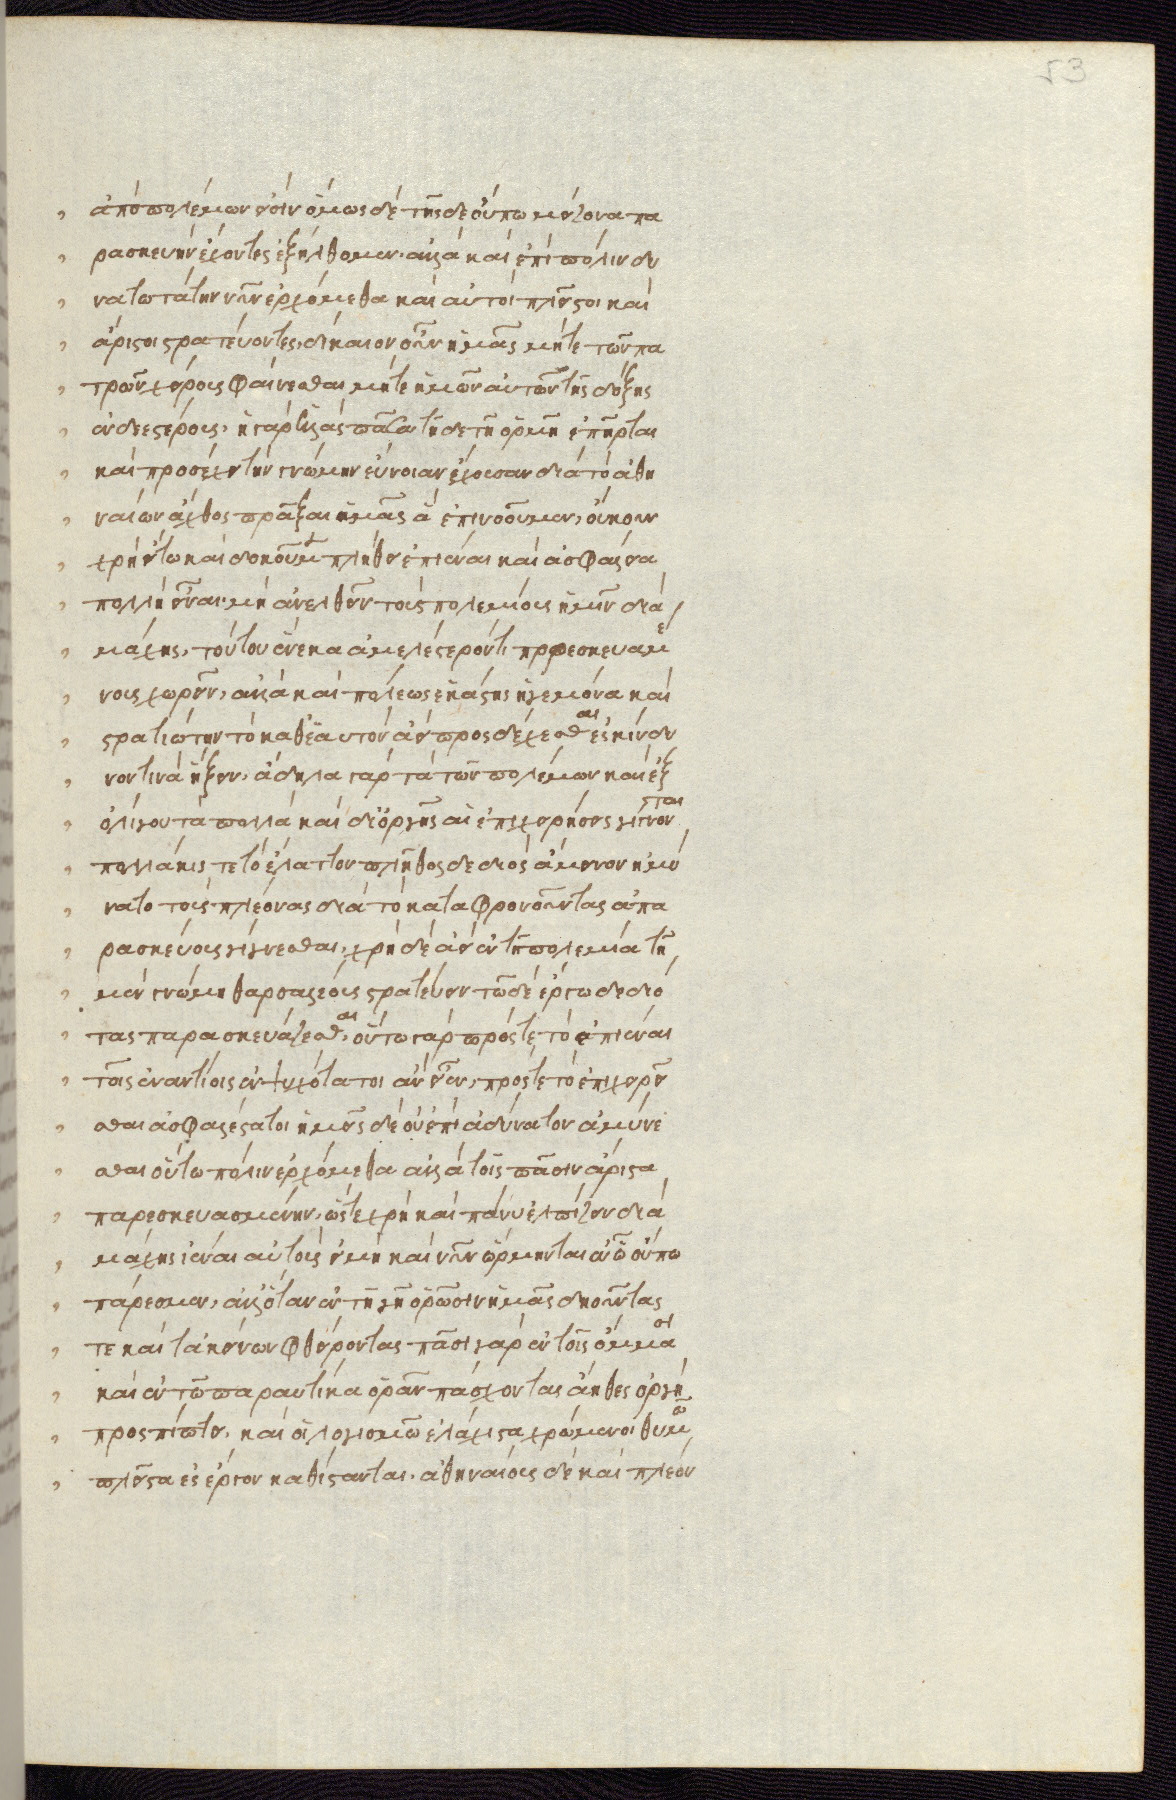 53
ἀπὸ πολέμων εἰσὶν ὅμως δὲ τῆσδε οὔπω μείζονα πα
ρασκευὴν ἔχοντες ἐξήλθομεν· ἀλλὰ καὶ ἐπὶ πόλιν δυ
νατωτάτην νῦν ἐρχόμεθα καὶ αὐτοὶ πλεῖστοι καὶ
ἄριστοι στρατεύοντες, δίκαιον οὖν ἡμᾶς μήτε τῶν πα
τρῶν χείρους φαίνεσθαι μήτε ἡμῶν αὐτῶν τῆς δόξης
ἐνδεεστέρους, ἡ γὰρ ἑλλὰς πᾶσα τῇδε τῇ ὁρμῇ ἐπῆρται
καὶ προσέχει τὴν γνώμην εὔνοιαν ἔχουσαν διὰ τὸ ἀθη
ναίων ἄχθος πρᾶξαι ἡμᾶς ἃ ἐπινοοῦμεν, οὔκουν
χρὴ εἴτω καὶ δοκοῦμεν πλήθει ἐπιέναι καὶ ἀσφάλεια
πολλὴ εἶναι· μὴ ἀνελθεῖν τοὺς πολεμίους ἡμῖν διὰ
μάχης, τούτου ἕνεκα ἀμελέστερόν τι παρεσκευασμέ
νους χωρεῖν, ἀλλὰ καὶ πόλεως ἑκάστης ἡγεμόνα καὶ
στρατιώτην τὸ καθ' ἑαυτὸν ἀεὶ προσδέχεσθαι εἰς κίνδυ
νον τινὰ ἥξειν, ἄδηλα γὰρ τὰ τῶν πολέμων καὶ ἐξ
ὀλίγου τὰ πολλὰ καὶ δι' ὀργῆς αἱ ἐπιχειρήσεις γίγνονται
πολλάκις τε τὸ ἔλαττον πλῆθος δεδιὸς ἄμεινον ἠμύ
νατο τοὺς πλέονας διὰ τὸ καταφρονοῦντας ἀπα
ρασκεύους γίγνεσθαι, χρὴ δὲ ἀεὶ ἐν τῇ πολεμίᾳ τῇ
μὲν γνώμῃ θαρσαλέους στρατεύειν τῷ δὲ ἔργῳ δεδιό
τας παρασκευάζεσθαι, οὕτω γὰρ πρός τε τὸ ἐπιέναι
τοῖς ἐναντίοις εὐψυχότατοι ἂν εἶεν, πρός τε τὸ ἐπιχειρεῖ
σθαι ἀσφαλέστατοι ἡμεῖς δὲ οὐ ἐπὶ ἀδύνατον ἀμύνε
σθαι οὕτω πόλιν ἐρχόμεθα ἀλλὰ τοῖς πᾶσιν ἄριστα
παρεσκευασμένην, ὥστε χρὴ καὶ πάνυ ἐλπίζειν διὰ
μάχης ἰέναι αὐτοὺς εἰ μὴ καὶ νῦν ὥρμηνται ἐν ᾧ οὔπω
πάρεσμεν, ἀλλ' ὅταν ἐν τῇ γῇ ὁρῶσιν ἡμᾶς δηοῦντας
τε καὶ τἀκείνων φθείροντας πᾶσι γὰρ ἐν τοῖς ὄμμασι
καὶ ἐν τῷ παραυτίκα ὁρᾶν πάσχοντας ἄηθες ὀργὴ
προσπίπτει, καὶ οἱ λογισμῷ ἐλάχιστα χρώμενοι θυμῷ
πλεῖστα ἐς ἔργον καθίστανται, ἀθηναίους δὲ καὶ πλέον